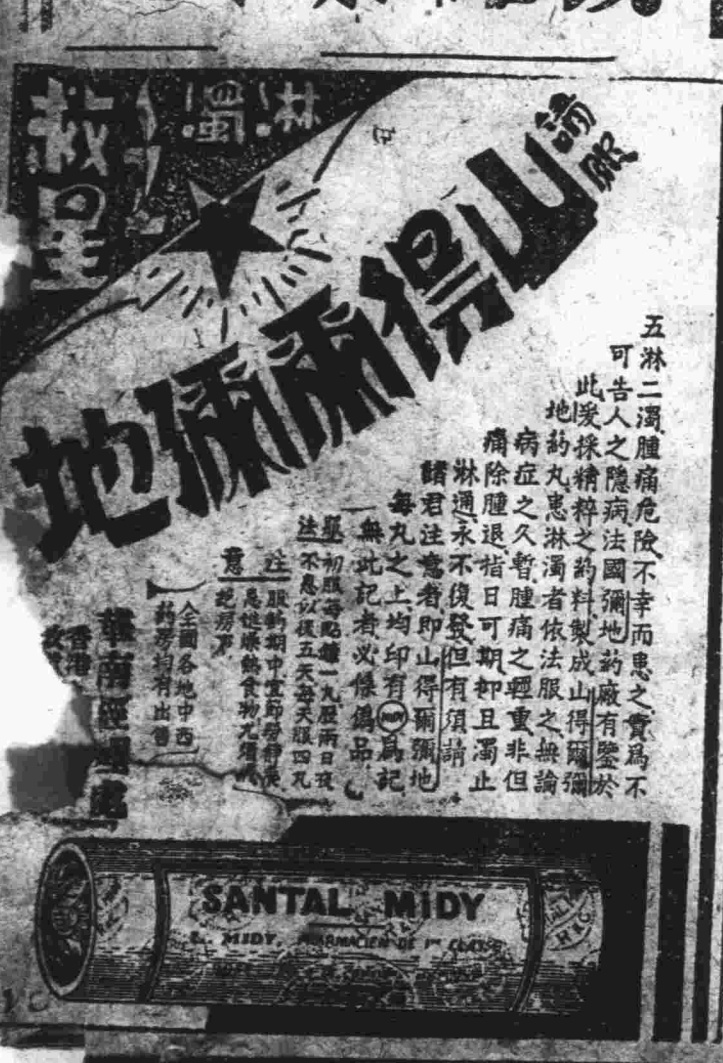 淋濁
之
救星
請服
山得爾彌地
五淋二濁、腫痛危險、不幸而患之、實爲不
可告人之隱病、法國彌地葯廠有鑒於
此、爰採精粹之葯料、製成山得爾彌
地葯丸、患淋濁者、依法服之、無論
病症之久暫、腫痛之輕重、非但
痛除腫退、指日可期、却且濁止
淋通、永不復發、但有須請
諸君注意者、即山得爾彌地
每丸之上、均印有MIDY爲記、
無此記者、必係僞品、
服法 初服每點鐘一丸服兩日夜
不息以後五天每天服四丸
注意 服葯期中宜節勞靜養
忌進燥熱食物尤須
絕房事
全國各地中西
葯房均有出售
華南經理處
香港
SANTAL MIDY
L. MIDY, PHARMACIEN DE 1re CLASSE